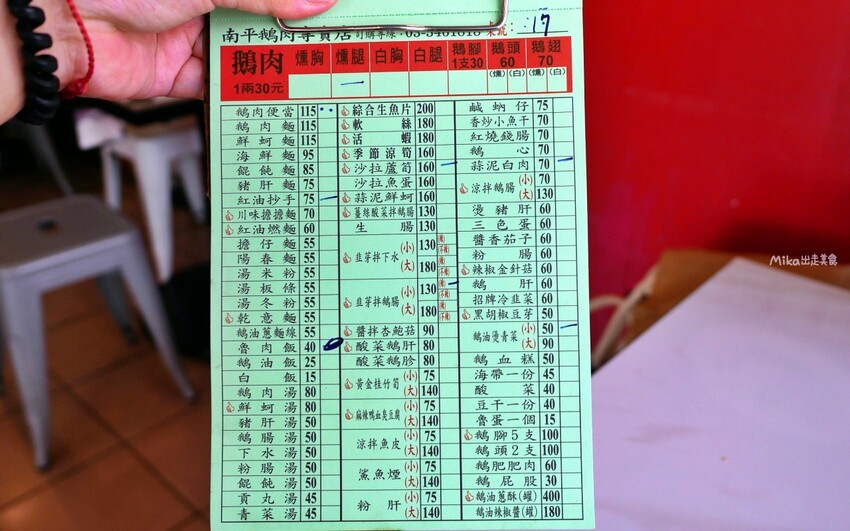 南平鵝肉專賣店 訂購專線：03-3461818 桌號: 17
鵝肉 1兩30元
燻胸
燻腿
白胸
白腿
鵝腳 1支30
鵝頭 60 (燻) (白)
鵝翅 70 (燻) (白)
鵝肉便當 115
鵝肉麵 115
鮮蚵麵 115
海鮮麵 95
餛飩麵 85
豬肝麵 75
紅油抄手 75
川味擔擔麵 70
紅油燃麵 60
擔仔麵 55
陽春麵 55
湯米粉 55
湯板條 55
湯冬粉 55
乾意麵 55
鵝油蔥麵線 55
魯肉飯 40
鵝油飯 25
白飯 15
鵝肉湯 80
鮮蚵湯 80
豬肝湯 50
鵝腸湯 50
下水湯 50
粉腸湯 50
餛飩湯 50
貢丸湯 45
青菜湯 45
綜合生魚片 200
軟絲 180
活蝦 180
季節涼筍 160
沙拉蘆筍 160
沙拉魚蛋 160
蒜泥鮮蚵 160
薑絲酸菜拌鵝腸 130
生腸 130
韭芽拌下水 (小) 130 (大) 180
韭芽拌鵝腸 (小) 130 (大) 180
醬拌杏鮑菇 90
酸菜鵝肝 80
酸菜鵝胗 80
黃金桂竹筍 (小) 75 (大) 140
麻辣鴨血臭豆腐 (小) 75 (大) 140
涼拌魚皮 (小) 75 (大) 140
鯊魚煙 (小) 75 (大) 140
粉肝 (小) 75 (大) 140
鹹蚋仔 75
香炒小魚干 70
紅燒錢腸 70
鵝心 70
蒜泥白肉 70
涼拌鵝腸 (小) 70 (大) 130
燙豬肝 60
三色蛋 60
醬香茄子 60
粉腸 60
辣椒金針菇 60
鵝肝 60
招牌冷韭菜 60
黑胡椒豆芽 50
鵝油燙青菜 (小) 50 (大) 90
鵝血糕 50
海帶一份 45
酸菜 40
豆干一份 40
魯蛋一個 15
鵝腳5支 100
鵝頭2支 100
鵝肥肥肉 60
鵝屁股 30
鵝油蔥酥(罐) 400
鵝油辣椒醬(罐) 180
Mika出走美食